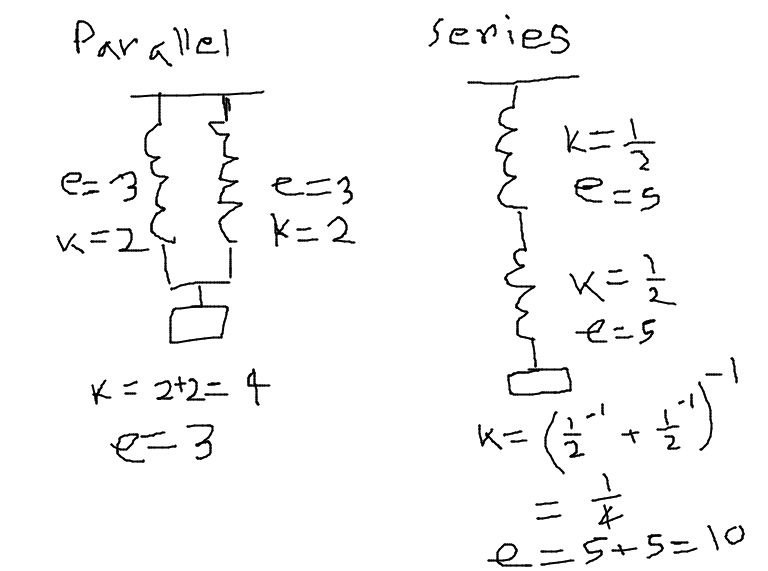 Parallel
e=3
k=2
e=3
k=2
k=2+2=4
e=3
series
k=1/2
e=5
k=1/2
e=5
k=(1/2⁻¹+1/2⁻¹)⁻¹
=1/4
e=5+5=10